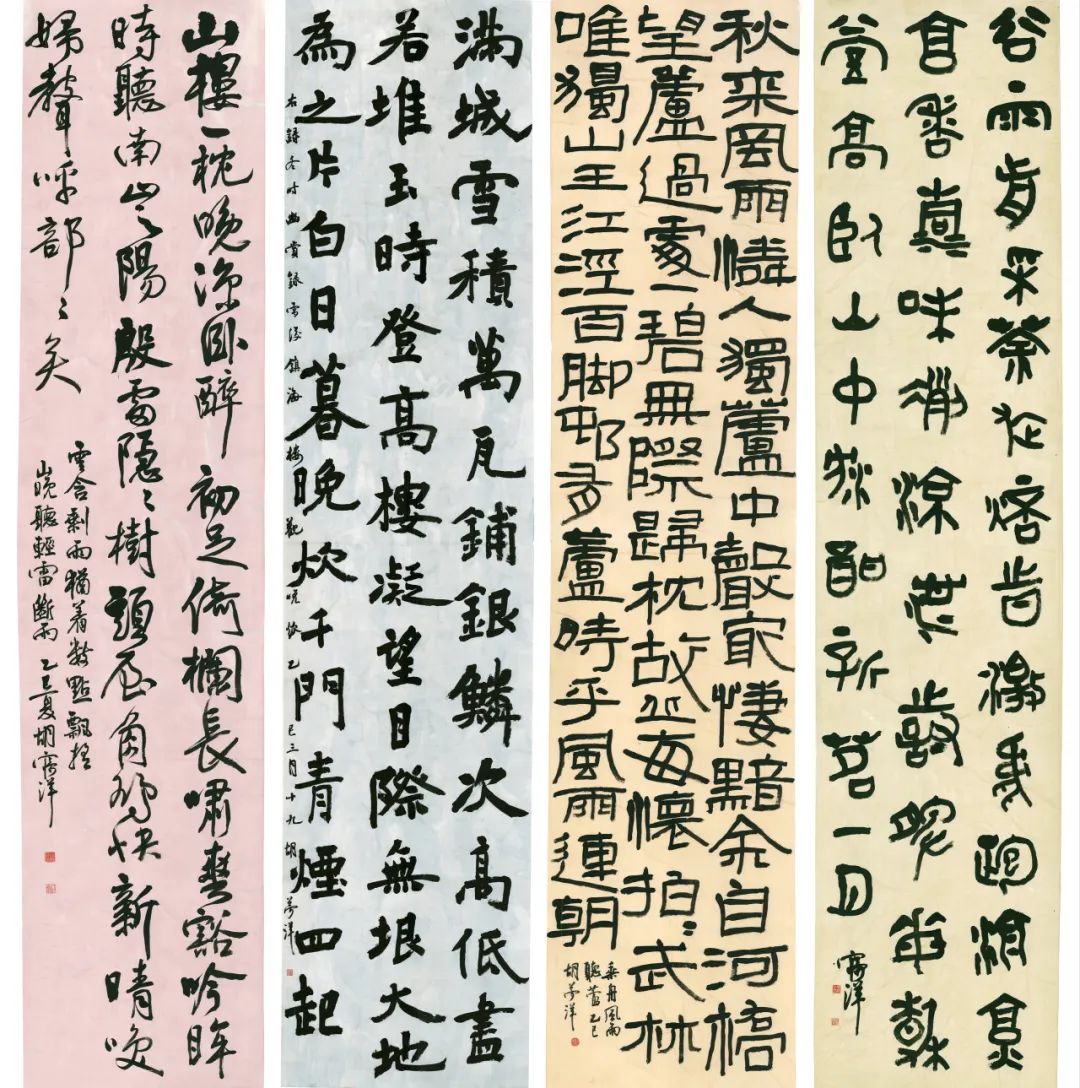 谷雨前采茶旋焙時激虎跑泉享
香真味冽涼沁詩脾每春
當高卧山中沉酣新茗一月
夢洋
秋来風雨憐人獨蘆中聲最悽黯余自河橋
望蘆過處一碧無際歸枕故丘每懷拍拍武林
唯獨山王江涇百脚邨多蘆時乎風雨連朝
乘舟風雨
聽蘆乙巳
胡夢洋
滿城雪積萬瓦鋪銀鱗次高低盡
若堆玉時登高樓凝望目際無垠大地
為之片白日暮晚炊千門青煙四起
右錄冬時幽賞錄雪後鎮海樓觀晚炊乙巳三月十九胡夢洋
山樓一枕晚涼卧醉初足倚欄長嘯爽豁吟眸
時聽南山之陽殷雷隱隱樹頭屋角鳩快新晴喚
婦聲呼部部矣
雲含剩雨猶着數點飄搖
山晚聽輕雷斷雨乙巳夏胡夢洋